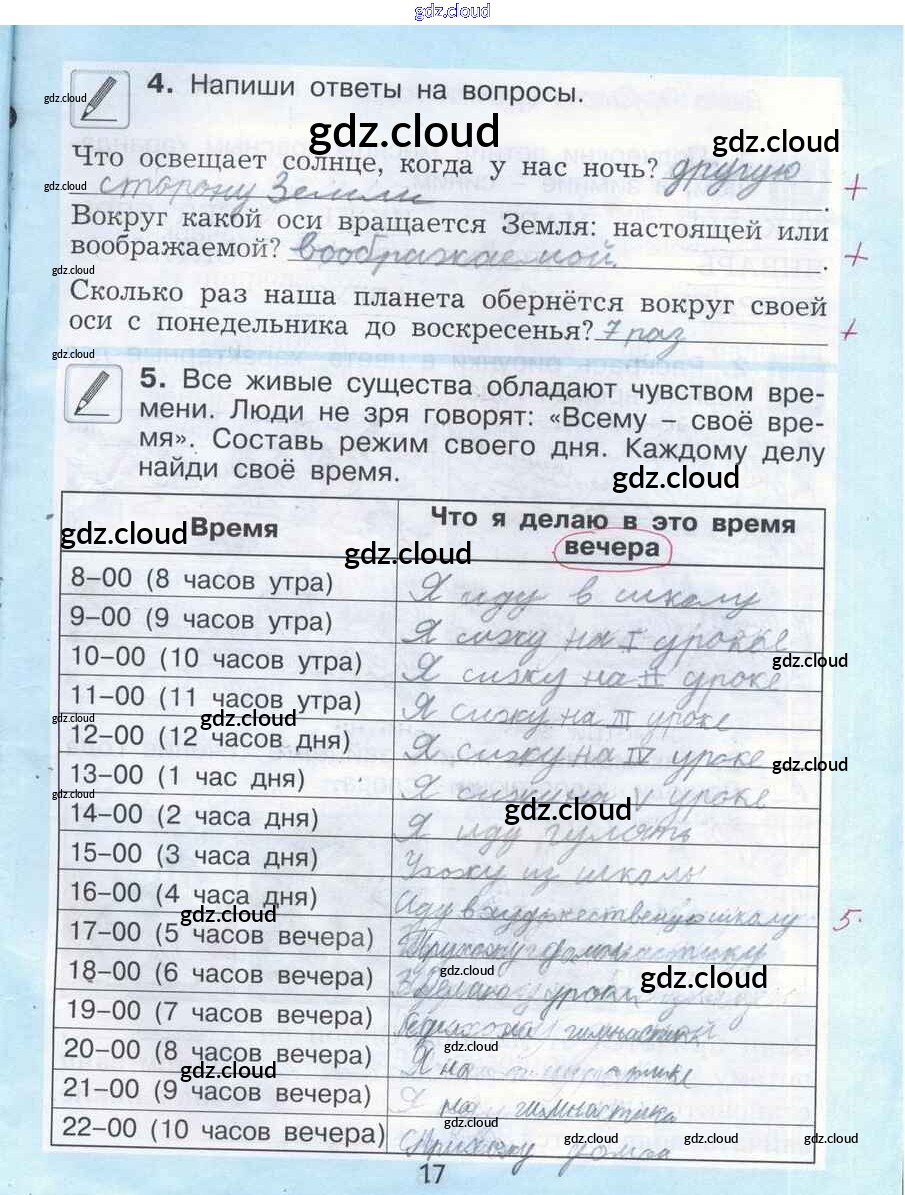 gdz.cloud
4. Напиши ответы на вопросы.
gdz.cloud
gdz.cloud
gdz.cloud
Что освещает солнце, когда у нас ночь? другую
gdz.cloud
сторону Земли.
Вокруг какой оси вращается Земля: настоящей или
воображаемой? воображаемой.
gdz.cloud
Сколько раз наша планета обернётся вокруг своей
оси с понедельника до воскресенья? 7 раз
gdz.cloud
5. Все живые существа обладают чувством вре-
мени. Люди не зря говорят: «Всему – своё вре-
мя». Составь режим своего дня. Каждому делу
найди своё время.
gdz.cloud
Время
Что я делаю в это время
вечера
gdz.cloud
gdz.cloud
8–00 (8 часов утра) Я иду в школу
9–00 (9 часов утра) Я сижу на I уроке
gdz.cloud
10–00 (10 часов утра) Я сижу на II уроке
11–00 (11 часов утра) Я сижу на III уроке
gdz.cloud
gdz.cloud
12–00 (12 часов дня) Я сижу на IV уроке
gdz.cloud
13–00 (1 час дня) Я сижу на V уроке
gdz.cloud
gdz.cloud
14–00 (2 часа дня) Я иду гулять
15–00 (3 часа дня) Ухожу из школы
16–00 (4 часа дня) Иду в школу 5.
gdz.cloud
17–00 (5 часов вечера) Прихожу
18–00 (6 часов вечера) Делаю уроки
gdz.cloud
gdz.cloud
gdz.cloud
19–00 (7 часов вечера)
20–00 (8 часов вечера) Я на
gdz.cloud
gdz.cloud
21–00 (9 часов вечера) Я на гимнастике
22–00 (10 часов вечера) Прихожу
gdz.cloud
gdz.cloud
gdz.cloud
gdz.cloud
17